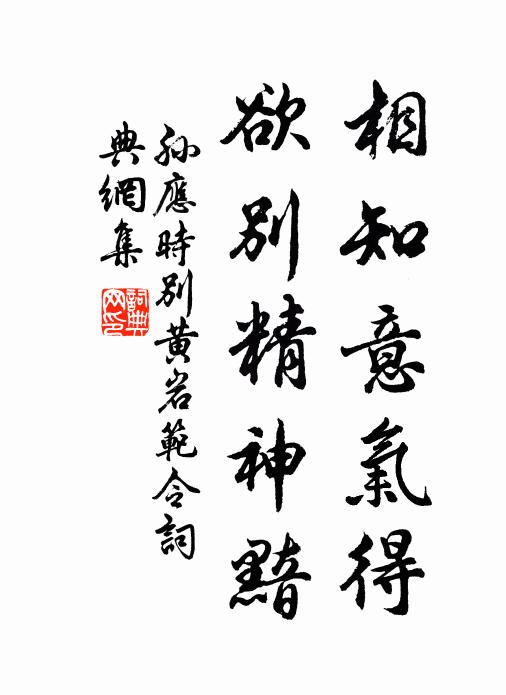 相知意氣得
欲別精神黯
孫應時別黃岩範令詞
典網集
詞典網印